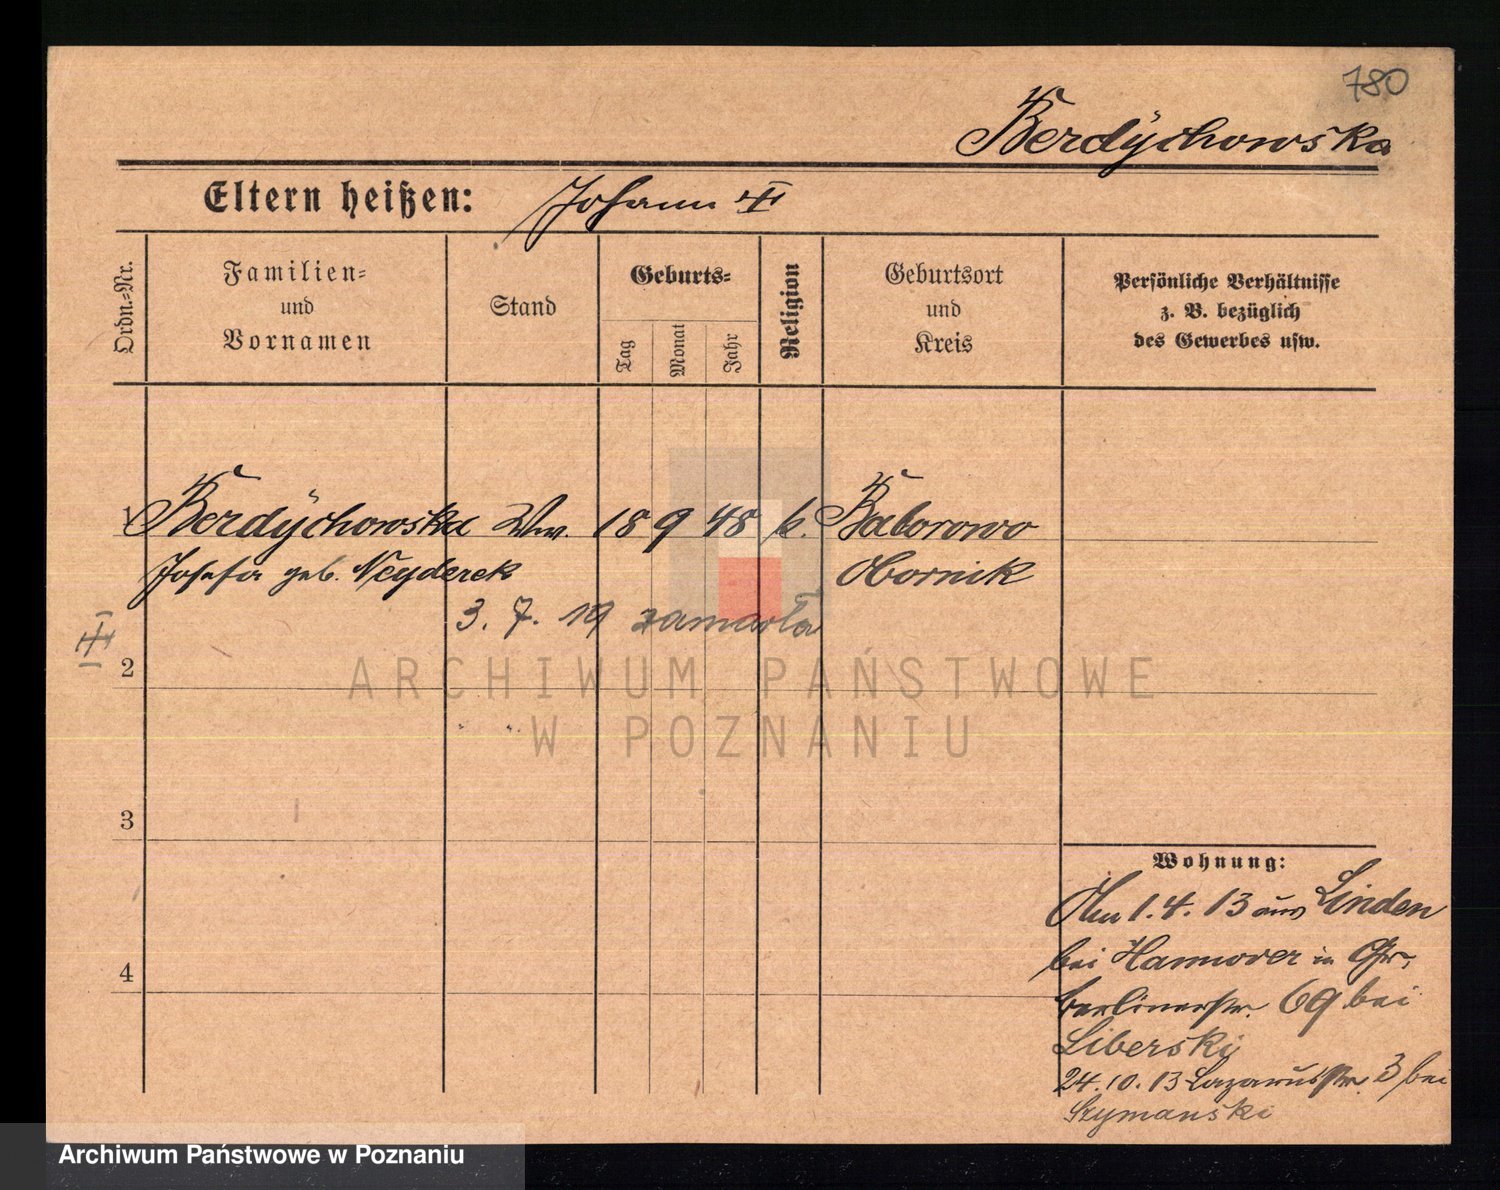 780
Berdychowska
Eltern heißen: Johann
Ordn.-Nr.
Familien-
und
Vornamen
Stand
Geburts-
Tag
Monat
Jahr
Religion
Geburtsort
und
Kreis
Persönliche Verhältnisse
z. B. bezüglich
des Gewerbes usw.
1 Berdychowska Ww. 18 9 48 k. Baborowo
Josefa geb. Neyderek Obornik
3. 7. 19 zamarła
2
ARCHIWUM PAŃSTWOWE
W POZNANIU
3
4
Wohnung:
Am 1. 4. 13 aus Linden
bei Hannover in Gr.
Berlinerstr. 69 bei
Liberski
24. 10. 13 Lazarusstr. 3 bei
Szymanski
Archiwum Państwowe w Poznaniu